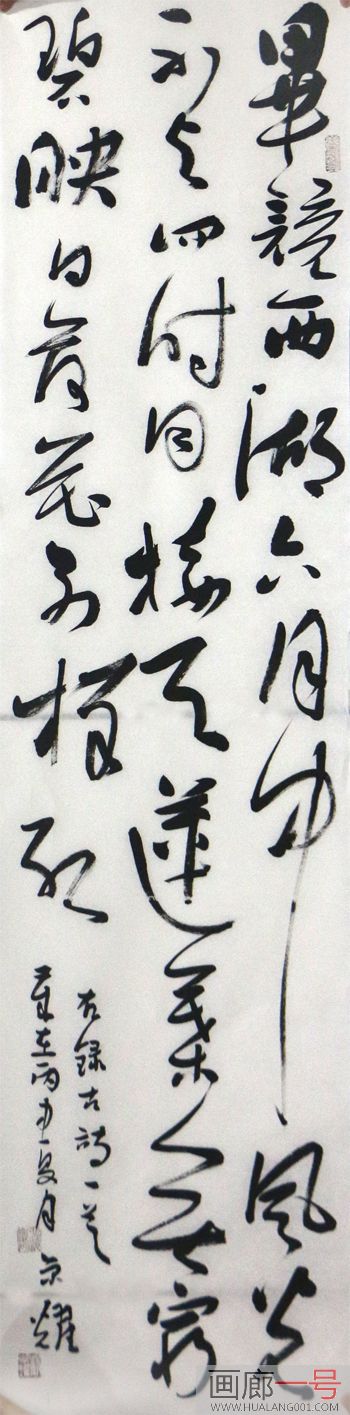 畢竟西湖六月中風光
不与四时同接天蓮葉無窮
碧映日荷花别樣红
右録古詩一首
歲在丙申夏月京耀
画廊一号
WWW.HUALANG001.COM